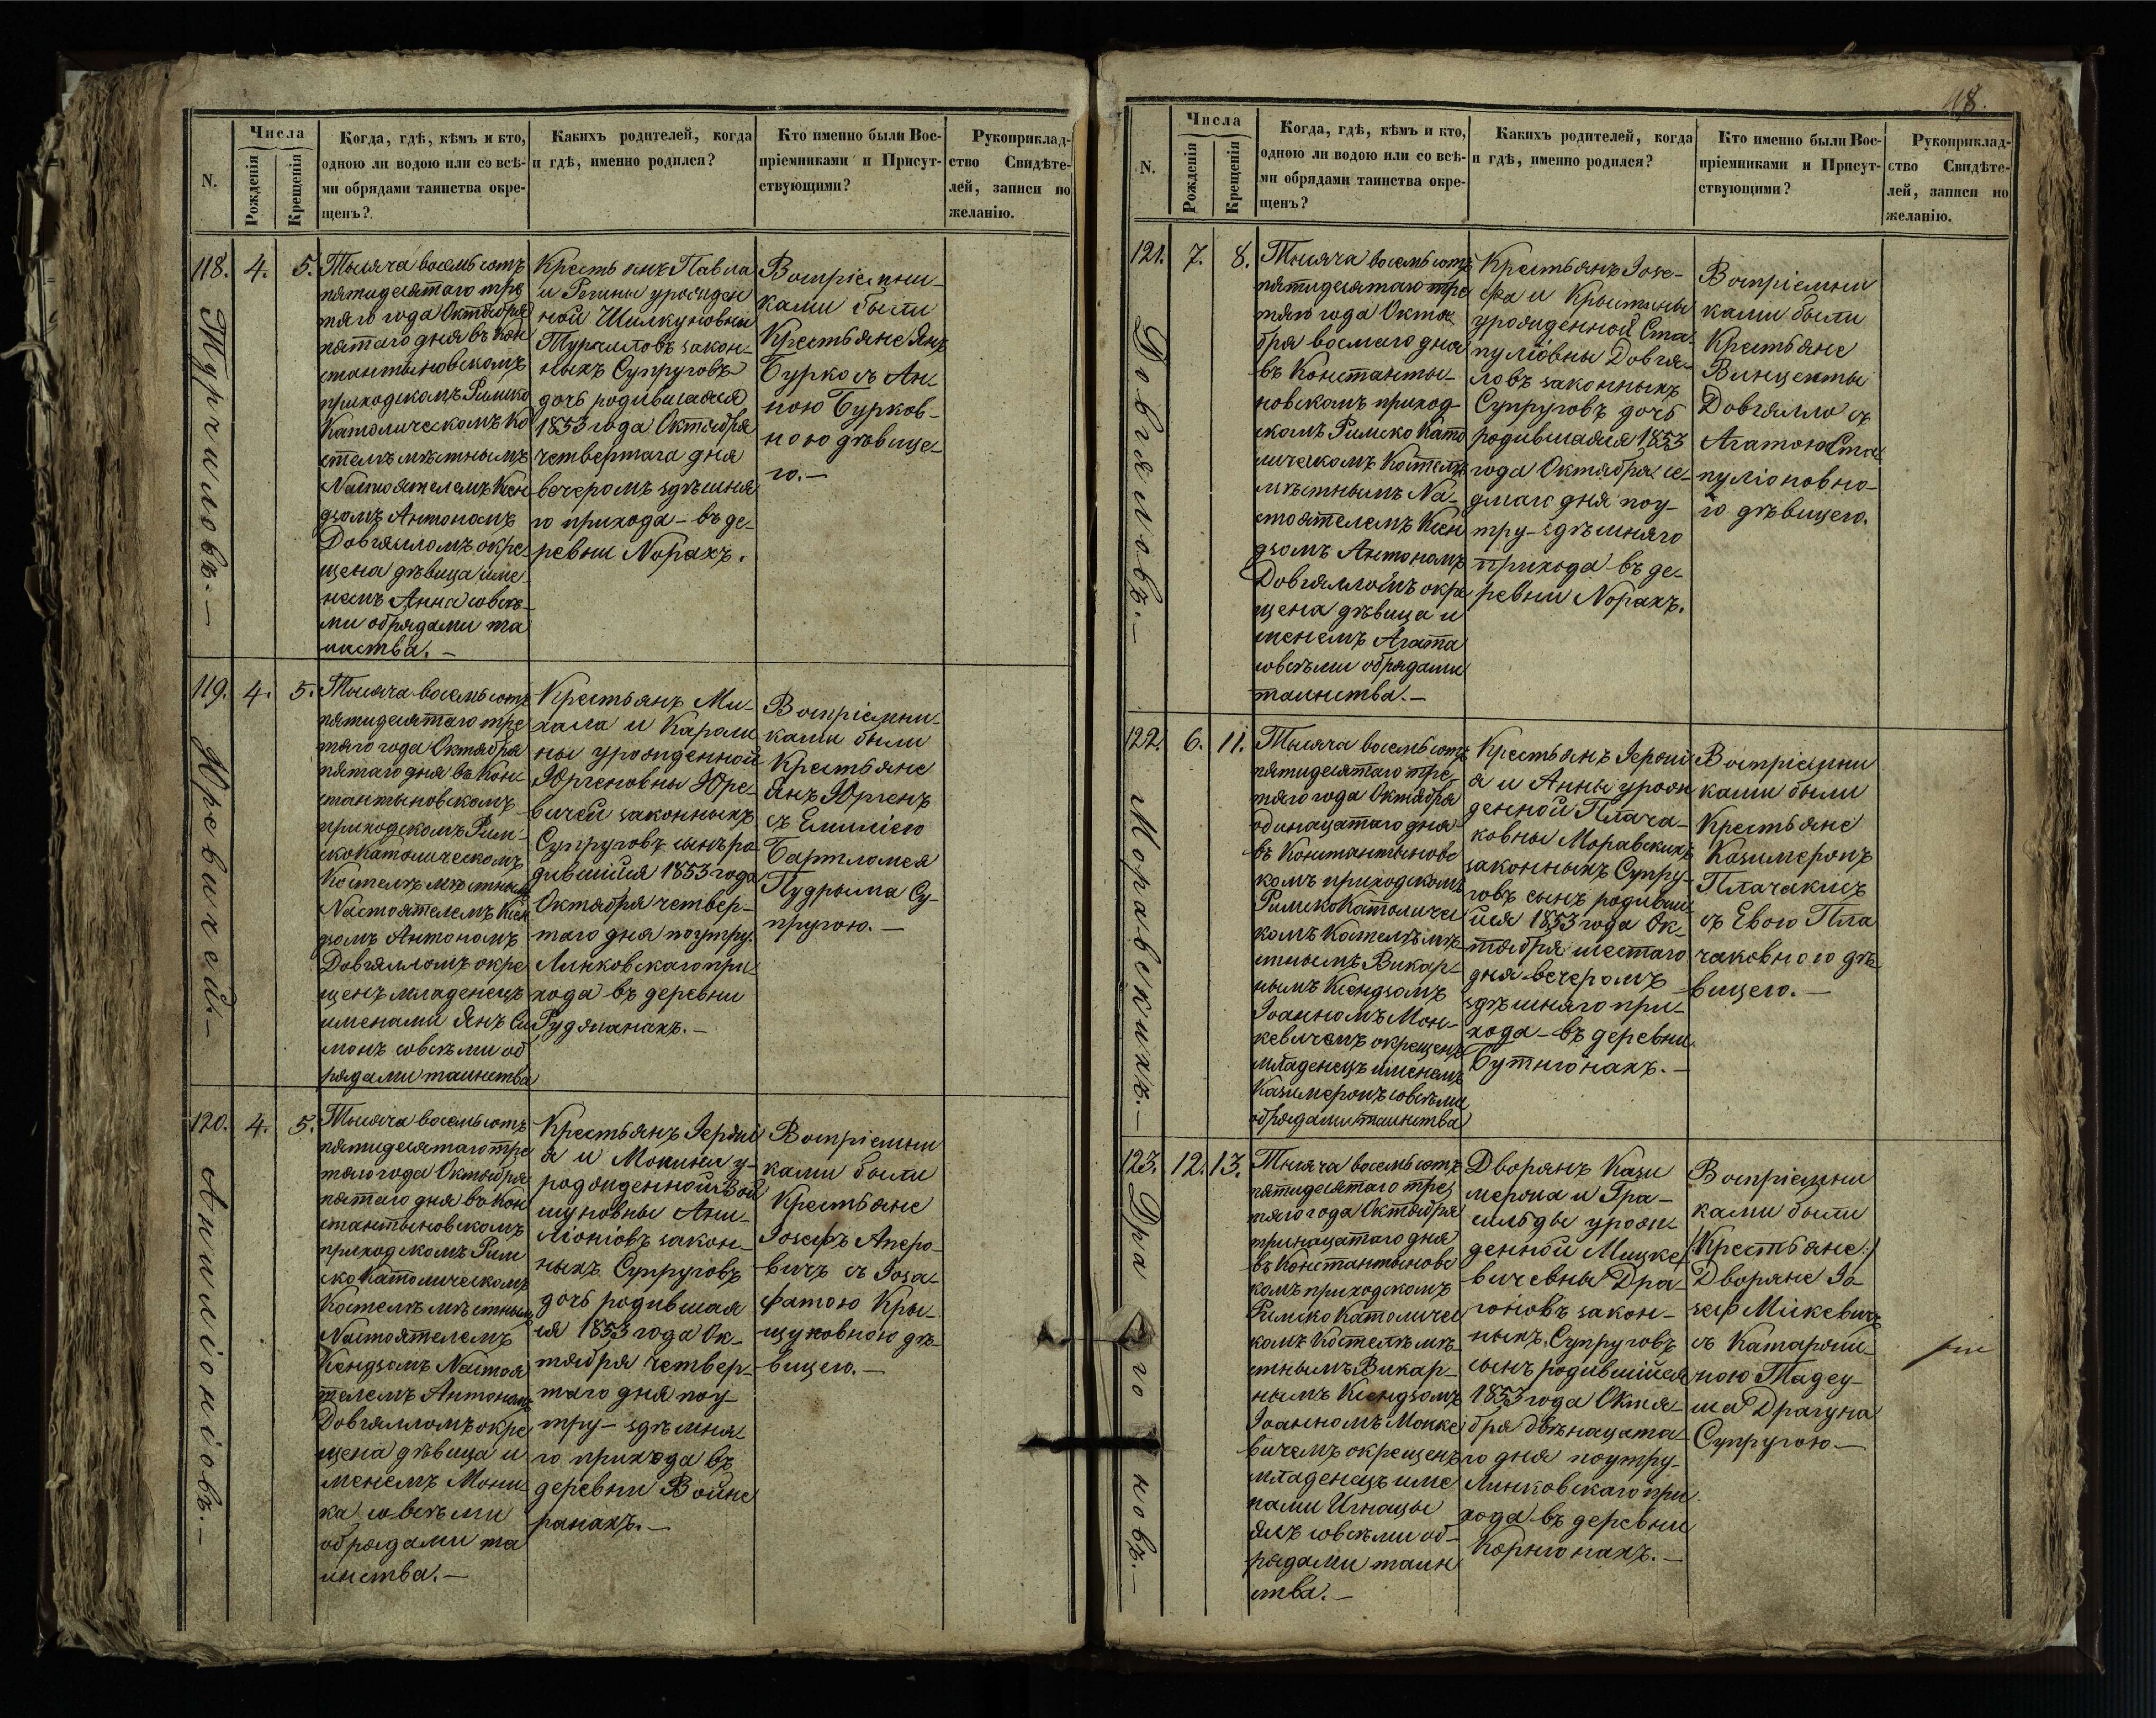 N.
Числа
Рожденія
Крещенія
Когда, гдѣ, кѣмъ и кто,
одною ли водою или со всѣ-
ми обрядами таинства окре-
щенъ?
Какихъ родителей, когда
и гдѣ, именно родился?
Кто именно были Вос-
пріемниками и Присут-
ствующими?
Рукоприклад-
ство Свидѣте-
лей, записи по
желанію.
118.
4.
5.
Тысяча восемь сотъ
пятидесятаго тре
тяго года Октября
пятаго дня въ Кон
стантыновскомъ
приходскомъ Римско
Католическомъ Ко
стелѣ мѣстнымъ
Настоятелемъ Ксен
дзомъ Антономъ
Довгялломъ окре
щена дѣвица име
немъ Анна совсѣ-
ми обрядами та
инства. —
Крестьянъ Павла
и Регины урожден
ной
законъ-
ныхъ Супруговъ
дочь родившаяся
1853 года Октября
четвертага дня
вечеромъ здѣшня
го прихода - въ де-
ревни Норахъ.
Воспріемни-
ками были
Крестьяне Янъ
Бурко съ Ан-
ною Бурков-
ною дѣвице-
ю. —
119.
4.
5.
Юревичей. —
Тысяча восемь сотъ
пятидесятаго тре
тяго года Октября
пятаго дня въ Кон
стантыновскомъ
приходскомъ Рим-
ско Католическомъ
Костелѣ мѣстнымъ
Настоятелемъ Ксен
дзомъ Антономъ
Довгялломъ окре
щенъ младенецъ
именами Янъ Си
монъ совсѣми об
рядами таинства
Крестьянъ Ми-
хала и Кароли
ны урожденной
Юргеновны Юре-
вичей законныхъ
Супруговъ сынъ ро
дившійся 1853 года
Октября четвер-
таго дня поутру.
Линковскаго при-
хода въ деревни
Рудянанахъ. —
Воспріемни-
ками были
Крестьяне
Янъ Юргенъ
съ Емиліею
Бартломея
Пудрыма Су-
пругою. —
120.
4.
5.
Анилiонiовъ. —
Тысяча восемь сотъ
пятидесятаго тре
тяго года Октября
пятаго дня во Кон
стантыновскомъ
приходскомъ Рим
ско Католическомъ
Костелѣ мѣстнымъ
Настоятелемъ
Ксендзомъ Настоя
телемъ Антономъ
Довгялломъ окре
щена дѣвица и
менемъ Мони
ка совсѣми
обрядами та
инства. —
Крестьянъ Іерони
а и Моники у-
рожденной
Ани-
ліоніовъ закон-
ныхъ Супруговъ
дочь родившая
ся 1853 года Ок-
тября четвер-
таго дня поу-
тру - здѣшня
го прихода въ
деревни Войне
ранахъ. —
Воспріемни
ками были
Крестьяне
Іозефъ Аперо-
вичъ съ Іоза-
фатою Кры-
щуновною дѣ-
вицею. —
18.
N.
Числа
Рожденія
Крещенія
Когда, гдѣ, кѣмъ и кто,
одною ли водою или со всѣ-
ми обрядами таинства окре-
щенъ?
Какихъ родителей, когда
и гдѣ, именно родился?
Кто именно были Вос-
пріемниками и Присут-
ствующими?
Рукоприклад-
ство Свидѣте-
лей, записи по
желанію.
121.
7.
8.
Довгяловъ. —
Тысяча восемь сотъ
пятидесятаго тре
тяго года Октя
бря восмаго дня
въ Константы-
новскомъ приход-
скомъ Римско Като
лическомъ Костелѣ
мѣстнымъ На-
стоятелемъ Ксен
дзомъ Антономъ
Довгялломъ окре
щена дѣвица и
менемъ Агата
совсѣми обрядами
таинства. —
Крестьянъ Іозе-
фа и Крыстыны
урожденной Ста-
пуліовны Довгя-
ловъ законныхъ
Супруговъ дочь
родившаяся 1853
года Октября се-
дмаго дня поу-
тру - здѣшняго
прихода въ де-
ревни Норахъ.
Воспріемни
ками были
Крестьяне
Винценты
Довгялло съ
Агатою Ста
пуліоновно-
ю дѣвицею.
122.
6.
11.
Моравскихъ. —
Тысяча восемь сотъ
пятидесятаго тре-
тяго года Октября
одинацатаго дня
въ Константыновс
комъ приходскомъ
Римско Католичес
комъ Костелѣ мѣ-
стнымъ Викар-
нымъ Ксендзомъ
Іоанномъ Мон-
кевичемъ окрещенъ
младенецъ именемъ
Казимеропъ совсѣми
обрядами таинства
Крестьянъ Іерони
а и Анны урож
денной Плача-
ковны Моравскихъ
законныхъ Супру-
говъ сынъ родивш
ійся 1853 года Ок-
тября шестаго
дня вечеромъ
здѣшняго при-
хода - въ деревни
Бутнюнахъ. —
Воспріемни
ками были
Крестьяне
Казимеропъ
Плачакисъ
съ Евою Пла
чаковною дѣ-
вицею. —
123.
12.
13.
Драгоновъ. —
Тысяча восемь сотъ
пятидесятаго тре
тяго года Октября
тринацатаго дня
въ Константыновс
комъ приходскомъ
Римско Католичес
комъ Костелѣ мѣ-
стнымъ Викар-
нымъ Ксендзомъ
Іоанномъ Монке
вичемъ окрещенъ
младенецъ име
нами Игнацы
янъ совсѣми об-
рядами таин
ства. —
Дворянъ Кази
мерона и Гра-
сильды урож-
денной Мицке-
вичевны Дра-
гоновъ закон-
ныхъ Супруговъ
сынъ родившійся
1853 года Октя-
бря двѣнацата
го дня поутру
Линковскаго при
хода въ деревни
Корнюнахъ. —
Воспріемни
ками были
/:Крестьяне:/
Дворяне Іо-
зеф Міцкевичъ
съ Катаржи-
ною Тадеу-
ша Драгуна
Супругою. —